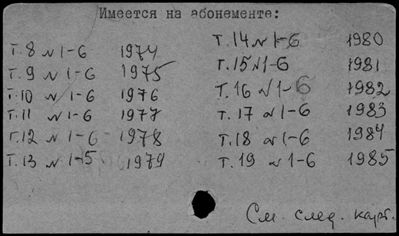 Имеется на абонементе:
т.8 №1-6 1974
т.9 №1-6 1975
т.10 №1-6 1976
т.11 №1-6 1977
т.12 №1-6 1978
т.13 №1-5 1979
т.14 №1-6 1980
т.15 №1-6 1981
т.16 №1-6 1982
т.17 №1-6 1983
т.18 №1-6 1984
т.19 №1-6 1985
См. след. карт.